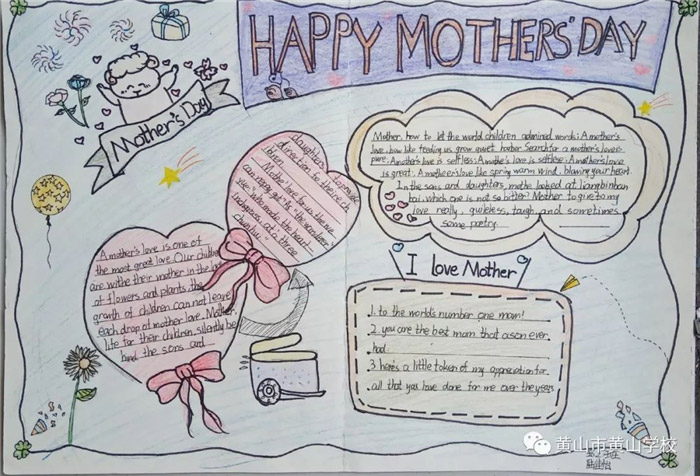 HAPPY MOTHERS' DAY
Mother's Day
Mother, how to let the world children admired words: A mother's
love, how like feeling us grow quiet harbor. Search for a mother's love is
pure. A mother's love is selfless: A mother's love is selfless: A mother's love
is great; A mother's love like spring warm wind, blowing your heart.
In the sons and daughters, mothe looked at liangbinhan
bai, which one is not so bitter? Mother to give to my
love really, guileless, tough, and sometimes
some poetry.
daughters, travel
direction for their ch
ildren.
Mothe love for us the sun
can energy get: As the
the heart
at a three
A mother's love is one of
the most great love. Our children
are withe their mother in the
of flowers and plants, the
growth of children can not leave
each drop of mother love. Mother,
life for their children, silently be
the sons and
I love Mother
1. to the world's number one mom!
2. you are the best mom that a son ever
had.
3 here's a little token of my appreciation for
all that you love done for me over the years
黄山市黄山学校